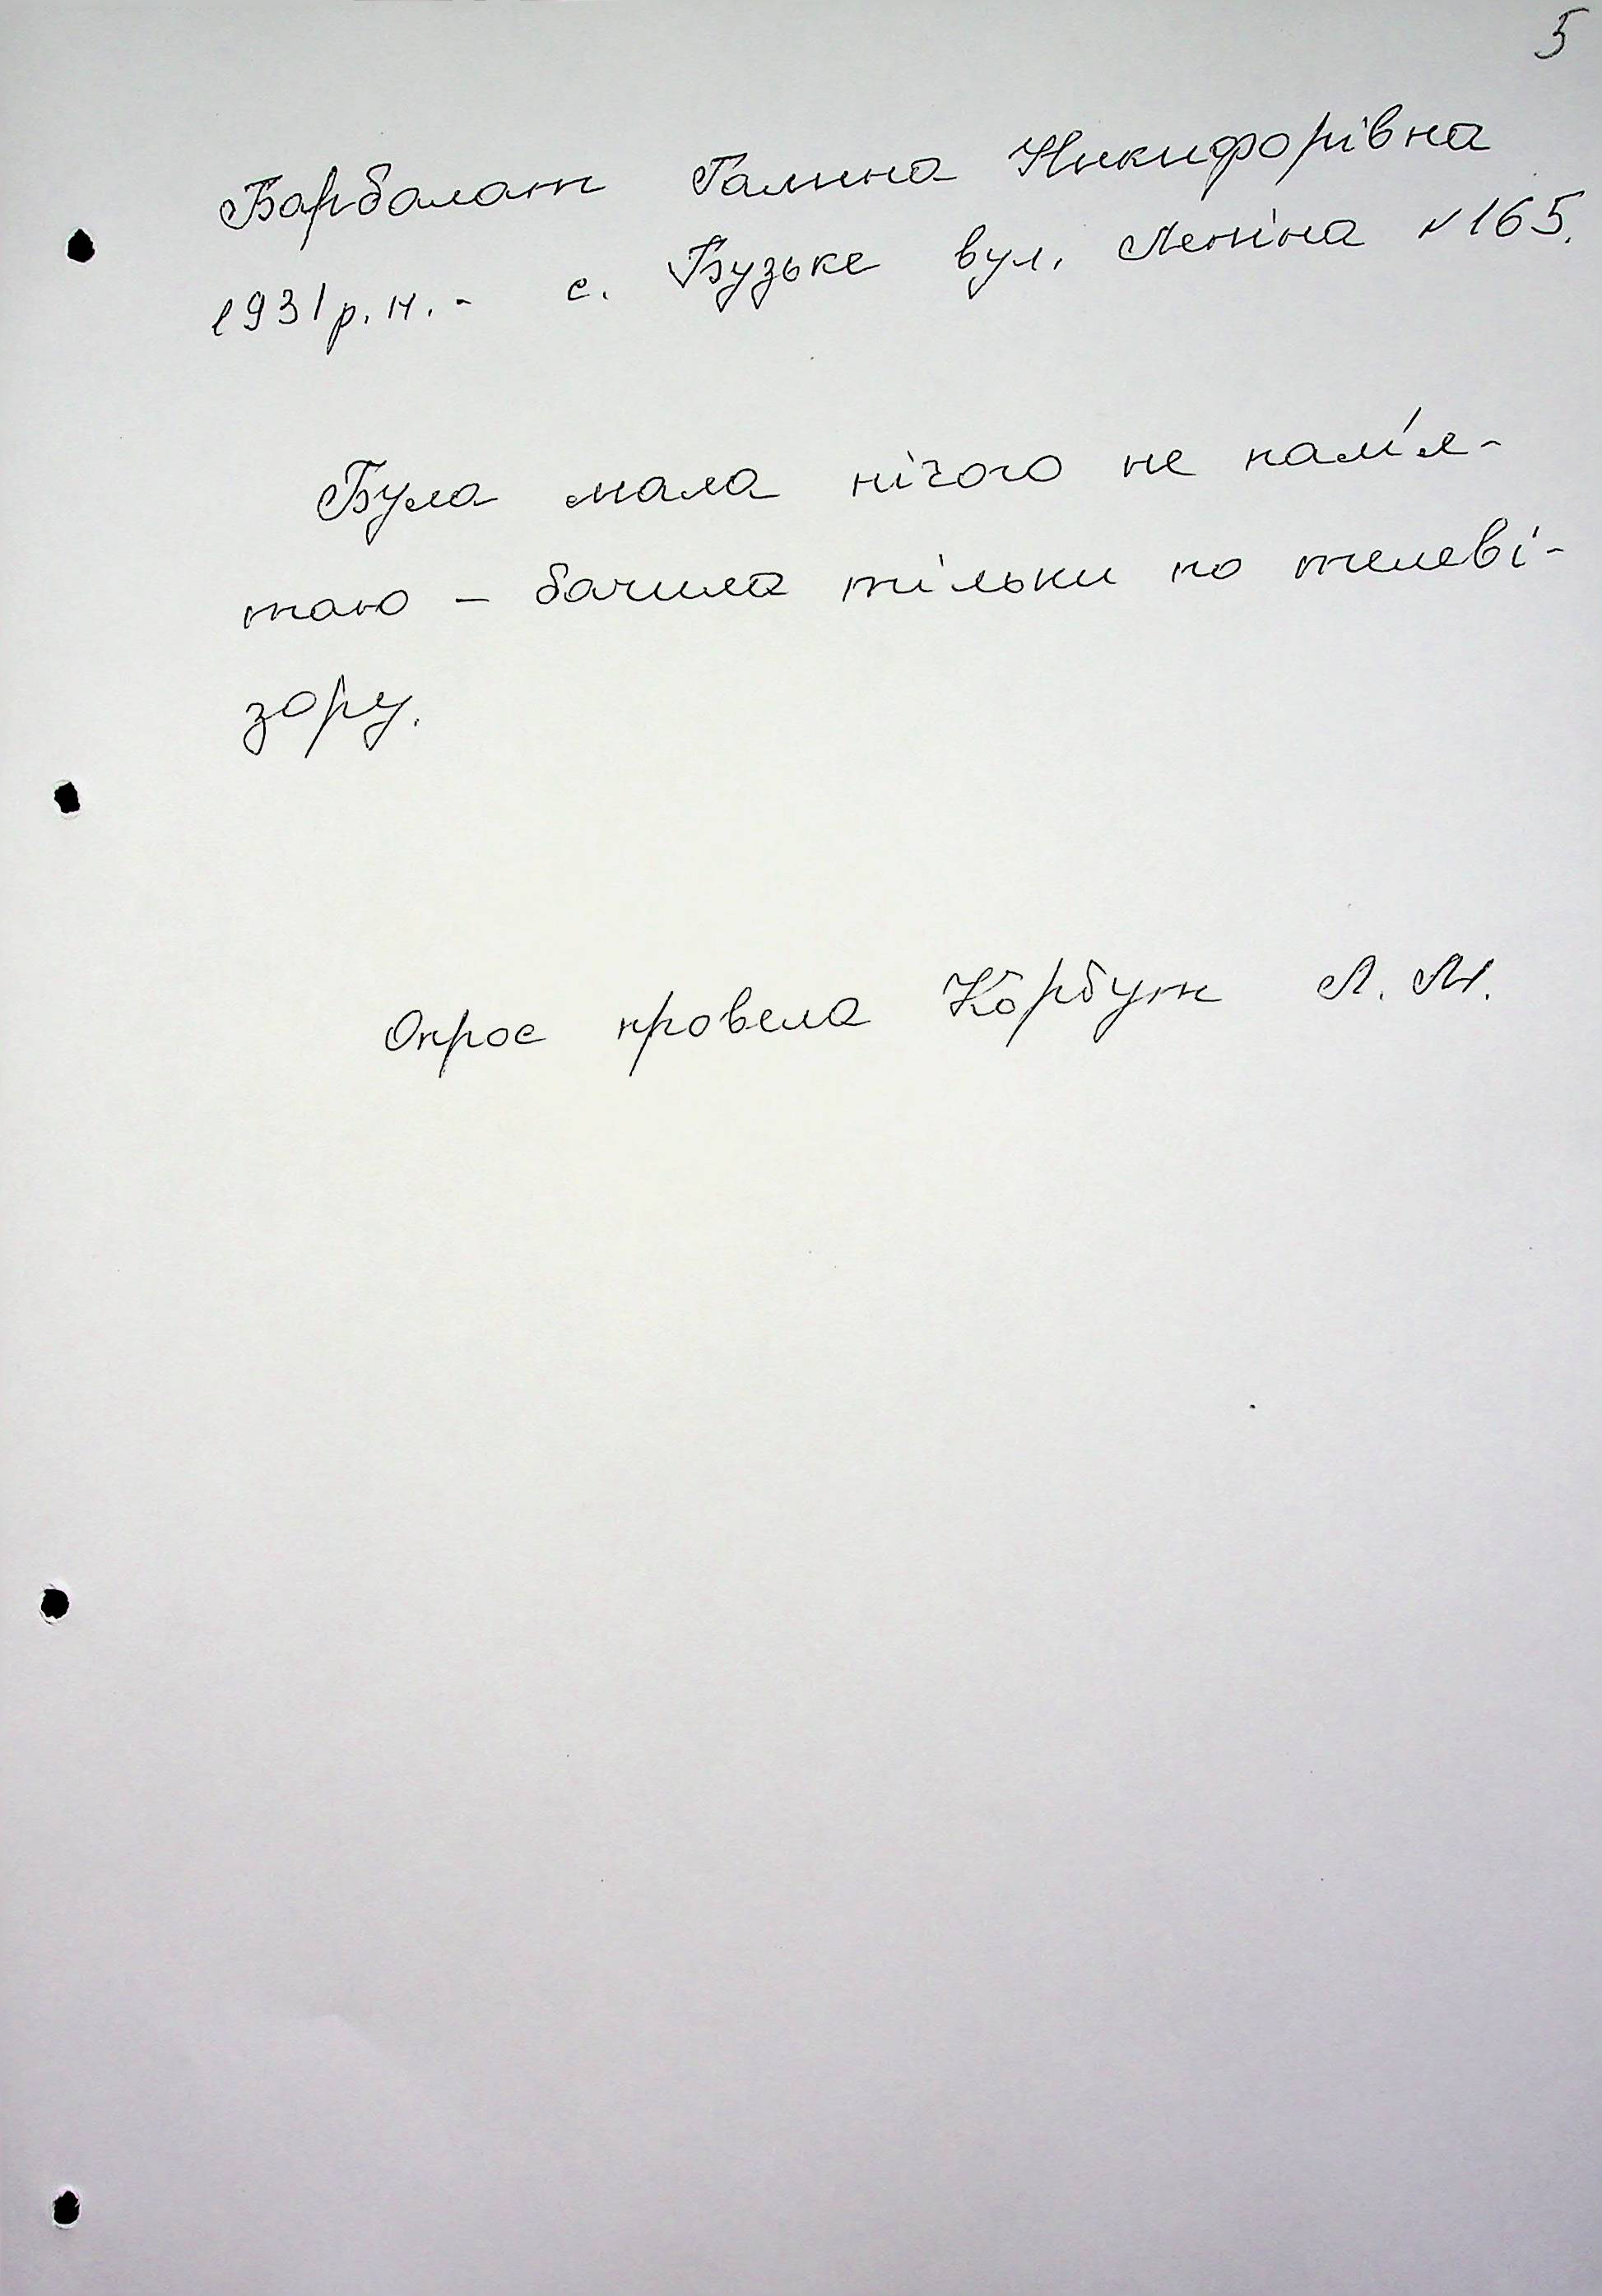 5
Барбалат Галина Никифорівна
1931 р.н. - с. Бузьке вул. Леніна №165.
Була мала нічого не пам'я-
таю - бачила тільки по телеві-
зору.
Опрос провела Корбут Л. М.